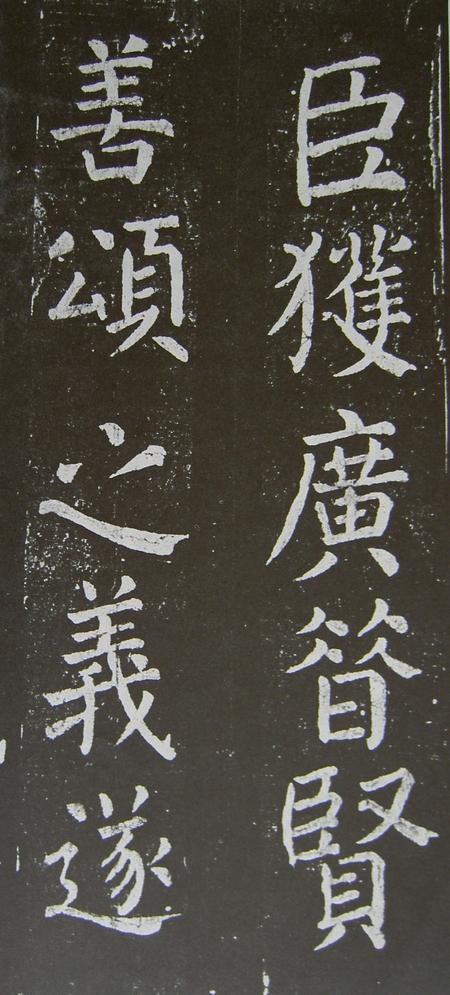 臣獲廣㫺賢
善頌之義遂